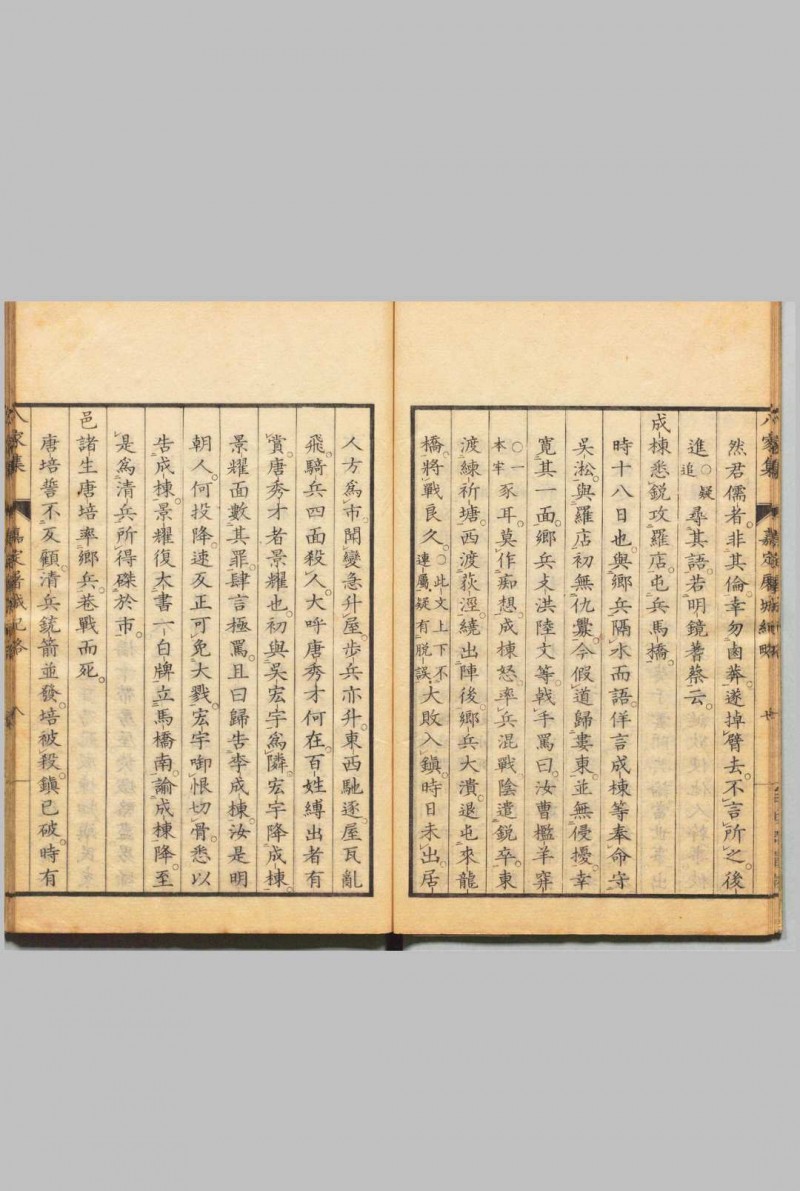 然君儒者。非其倫。幸勿鹵莽。遂掉臂去。不言所之後
進〇疑追尋其語。若明鏡蓍蔡云。
成棟悉銳攻羅店。屯兵馬橋。
時十八日也。與鄉兵隔水而語。佯言成棟等奉命守
吳淞。與羅店初無仇釁。今假道歸婁東。並無侵擾。幸
寬其一面。鄉兵支洪陸文等。戟手罵曰。汝曹檻羊穽
〇一本牢豕耳。莫作痴想。成棟怒。率兵混戰。陰遣銳卒。東
渡練祈塘。西渡荻涇。繞出陣後。鄉兵大潰。退屯來龍
橋。將戰良久。〇此文上下不連屬、疑有脫誤、大敗入鎮。時日未出。居
人方爲市。聞變急升屋。步兵亦升。東西馳逐。屋瓦亂
飛。騎兵四面殺人。大呼唐秀才何在。百姓縛出者有
賞。唐秀才者景耀也。初與吳宏宇爲隣。宏宇降成棟。
景耀面數其罪。肆言極罵。且曰歸告李成棟。汝是明
朝人。何投降。速反正可免大戮。宏宇啣恨切骨。悉以
告成棟。景耀復大書一白牌。立馬橋南。諭成棟降。至
是爲清兵所得。磔於市。
邑諸生唐培率鄉兵。巷戰而死。
唐培誓不反顧。清兵銃箭並發。培被殺。鎮已破。時有
八家集
嘉定屠城紀略
八
八家集
嘉定屠城紀略